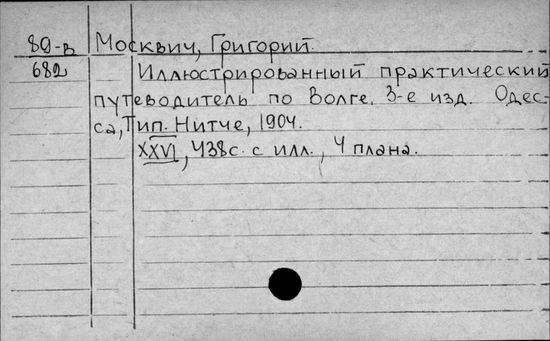 80-в Москвич, Григорий
682 Иллюстрированный практический
путеводитель по Волге. 3-е изд. Одес-
са, Тип. Нитче, 1904.
XXVI, 438с. с илл., 4 плана.